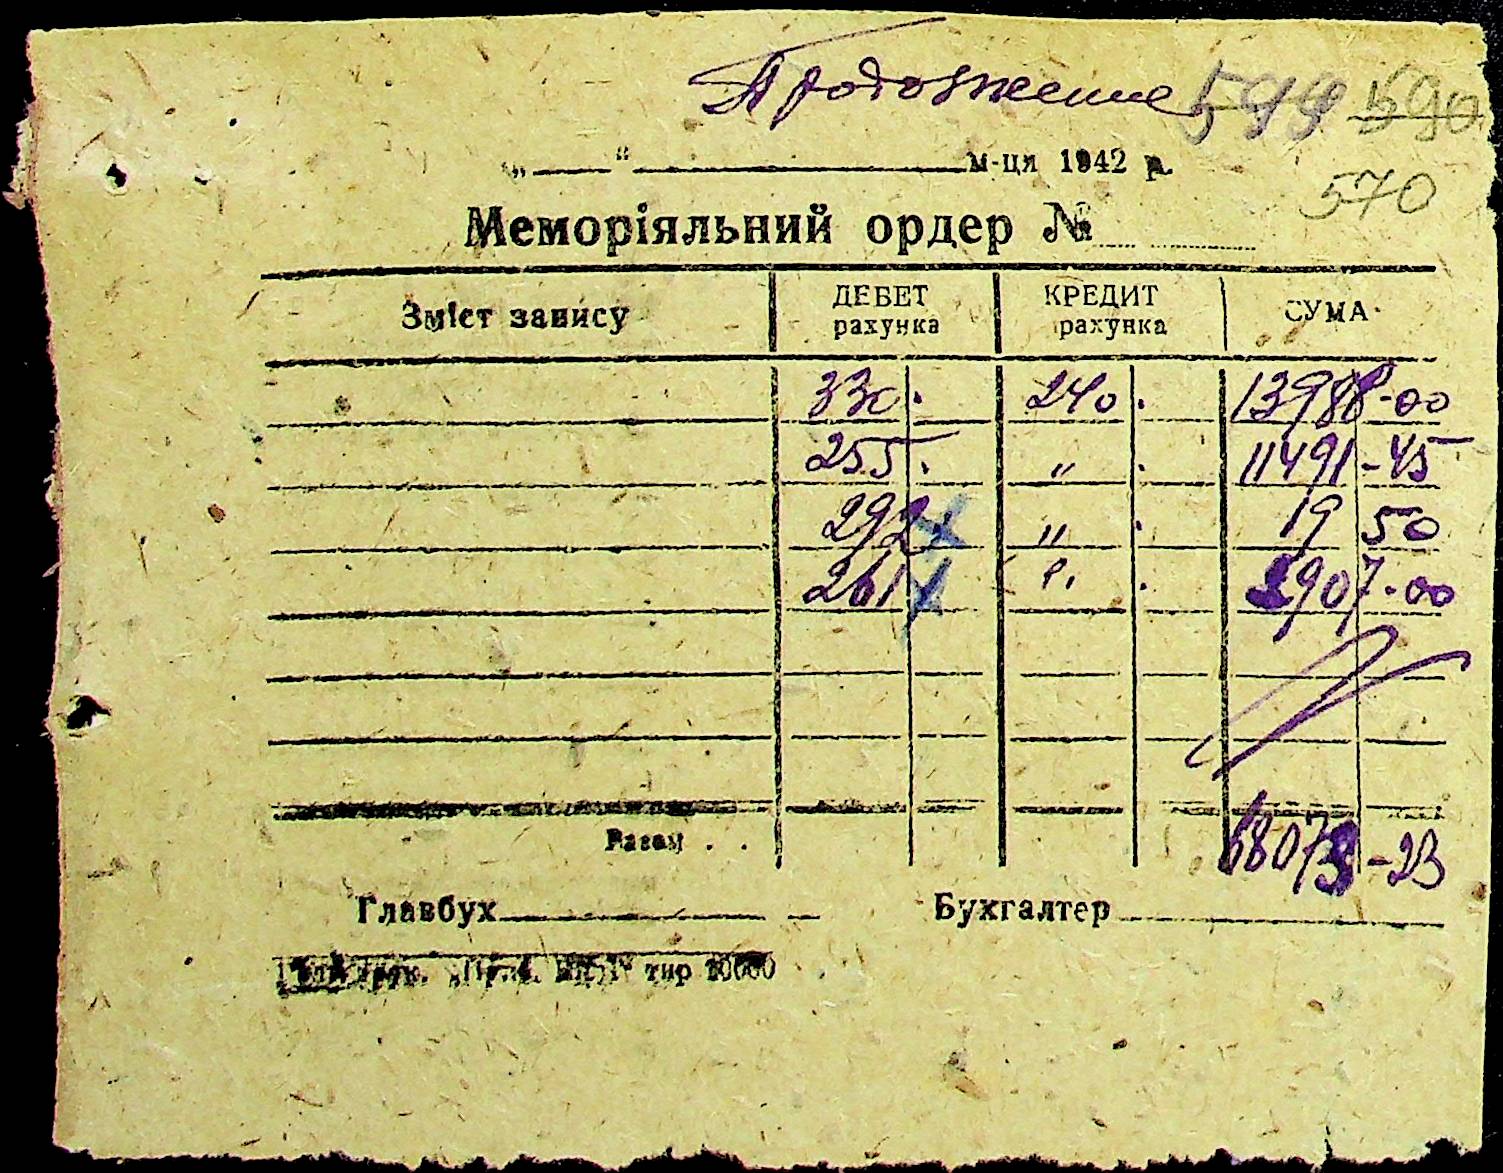 Продолжение 599 590
„ “ м-ця 1942 р.
570
Меморіяльний ордер №
Зміст запису ДЕБЕТ рахунка КРЕДИТ рахунка СУМА
330. 240. 13988-00
255. " . 11491-45
292 " . 19 50
261 " . 907-00
Разом . . 68073-23
Главбух Бухгалтер
тир 10000